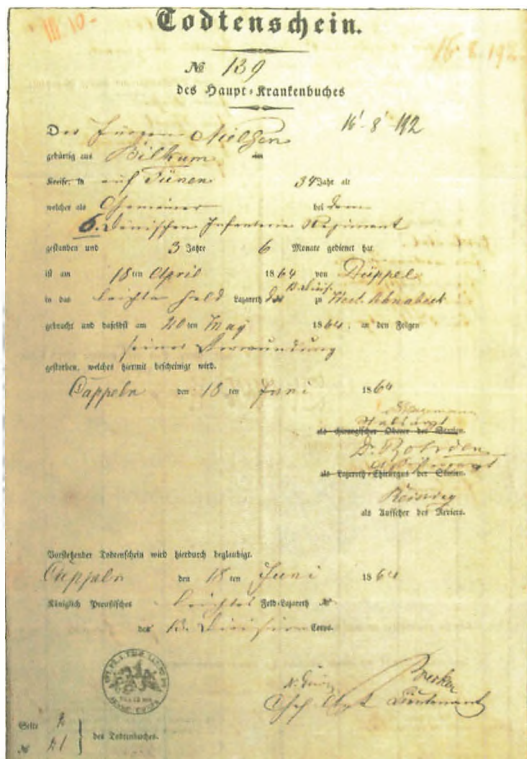 Todtenschein.
№ 139
des Haupt-Krankenbuches
16'-8'-192
Des Jürgen Nielsen
gebürtig aus Bilkum im
Kreise, in auf Fünen 34 Jahr alt
welcher als Gemeiner bei dem
6. Dänischen Infanterie Regiment
gestanden und 3 Jahre 6 Monate gedient hat
ist am 18 ten April 1864 von Düppel
in das leichte Feld Lazareth zu West
gebracht und daselbst am 20 ten May 1864 an den Folgen
seiner Verwundung
gestorben, welches hiermit bescheinigt wird.
Cappeln den 18 ten Juni 1864
Stabsarzt
als chirurgischer Oberer der Station.
Dr.
als Lazareth-Chirurgus der Station.
als Aufseher des Reviers.
Vorstehender Todtenschein wird hierdurch beglaubigt.
Cappeln den 18 ten Juni 1864
Königlich Preußisches leichtes Feld-Lazareth №
der 13. Division Corps.
Chef Arzt Lieutenant
Seite 2
№ 21 des Todtenbuches.